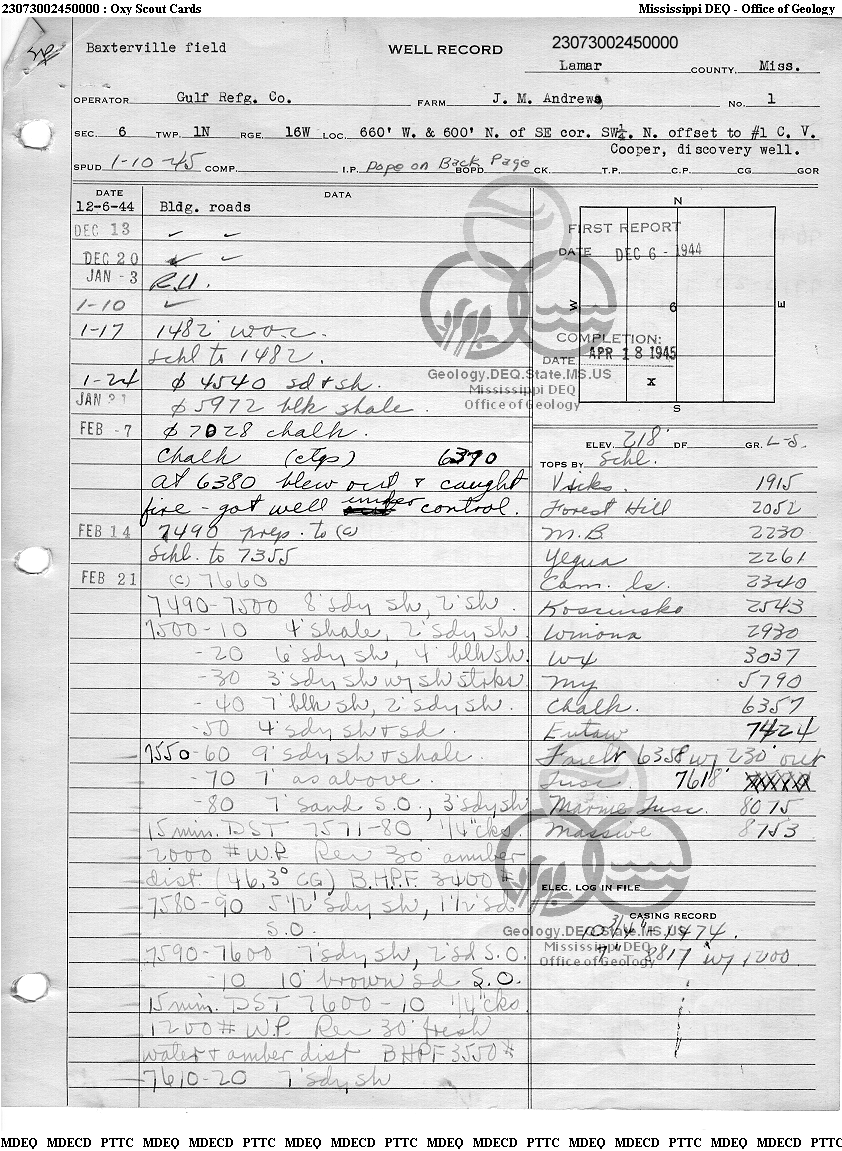 23073002450000 : Oxy Scout Cards
Mississippi DEQ - Office of Geology
Baxterville field
WELL RECORD
23073002450000
Lamar COUNTY, Miss.
OPERATOR Gulf Refg. Co. FARM J. M. Andrews No. 1
SEC. 6 TWP. 1N RGE. 16W LOC. 660' W. & 600' N. of SE cor. SW¼. N. offset to #1 C. V.
Cooper, discovery well.
SPUD 1-10-45 COMP. I.P. Dope on Back Page BOPD CK. T.P. C.P. CG GOR
DATE DATA
12-6-44 Bldg. roads
DEC 13 ✓ ✓
DEC 20 ✓ ✓
JAN -3 R.U.
1-10 ✓
1-17 1482' W.O.C.
Schl to 1482.
1-24 ϕ 4540 sd & sh.
JAN 31 ϕ 5972 blk shale.
FEB -7 ϕ 7028 chalk.
Chalk (ctgs) 6390
At 6380 blew out & caught
fire - got well under control.
FEB 14 7490 prep. to (C)
Schl. to 7355
FEB 21 (C) 7660
7490-7500 8' sdy sh, 2' sh.
7500-10 4' shale, 2' sdy sh.
-20 6' sdy sh, 4' blk sh.
-30 3' sdy sh w/ sh strks
-40 7' blk sh, 2' sdy sh.
-50 4' sdy sh & sd.
7550-60 9' sdy sh & shale.
-70 7' as above.
-80 7' sand S.O., 3' sdy sh
15 min. DST 7571-80 1/4" cks.
2000 # W.P. Rev 30' amber
dist. (46.3° CG) B.H.P.F. 3400 #
7580-90 5 1/2' sdy sh, 1 1/2' sd
S.O.
7590-7600 7' sdy sh, 2' sd S.O.
-10 10' brown sd S.O.
15 min. DST 7600-10 1/4" cks
1200 # W.P. Rev 30' fresh
water & amber dist BHPF 3550 #
7610-20 7' sdy sh
N
FIRST REPORT
DATE DEC 6 - 1944
W 6 E
COMPLETION:
DATE APR 18 1945
X
S
Geology.DEQ.State.MS.US
Mississippi DEQ
Office of Geology
ELEV. 218' DF GR. L-S.
TOPS BY Schl.
Vicks. 1915
Forest Hill 2052
M.B. 2230
Yegua 2261
Cam. ls. 2340
Kosciusko 2543
Winona 2930
WX 3037
My 5790
Chalk. 6357
Eutaw 7424
Fault 6358 w/ 230' out
Tusc. 7618'
Marine Tusc. 8075
Massive 8753
ELEC. LOG IN FILE
CASING RECORD
10 3/4" - 1474.
7" - 8817 w/ 1200
Geology.DEQ.State.MS.US
Mississippi DEQ
Office of Geology
MDEQ MDECD PTTC MDEQ MDECD PTTC MDEQ MDECD PTTC MDEQ MDECD PTTC MDEQ MDECD PTTC MDEQ MDECD PTTC